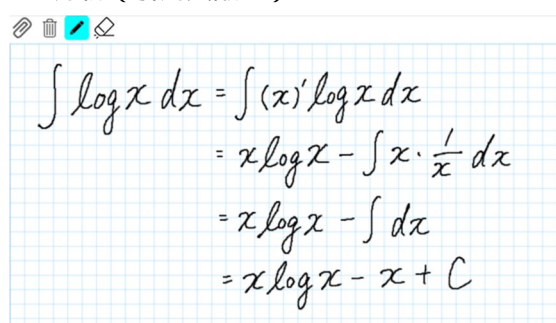 ∫ log x dx = ∫ (x)' log x dx
= x log x − ∫ x · 1/x dx
= x log x − ∫ dx
= x log x − x + C